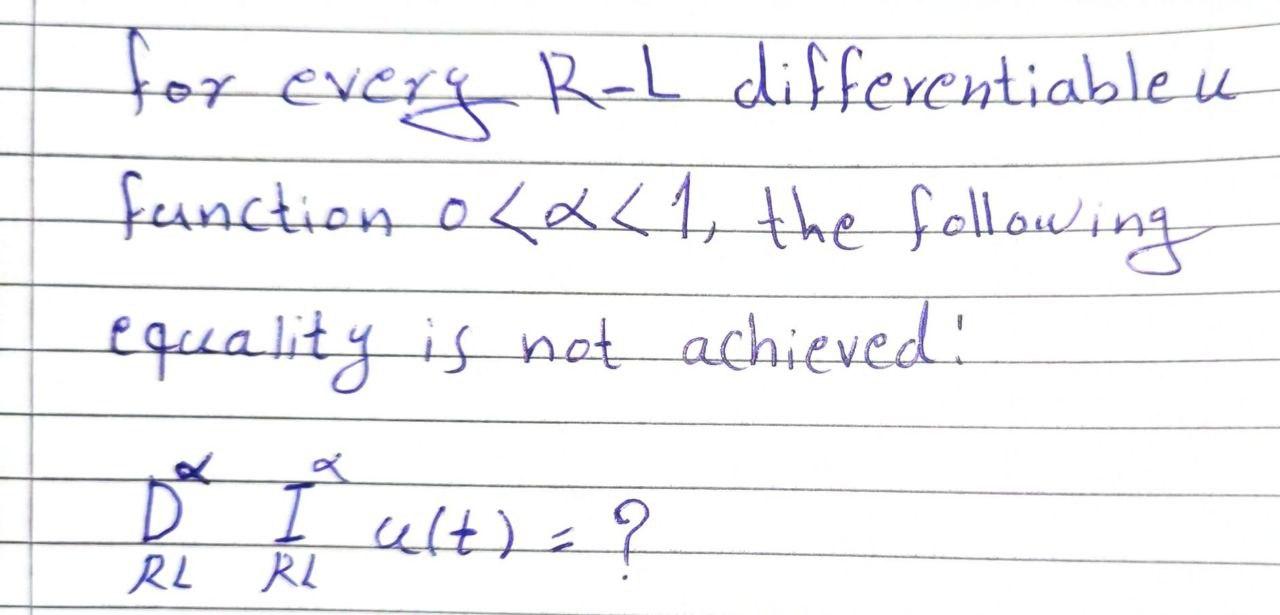 for every R-L differentiable u
function 0<α<1, the following
equality is not achieved:
D^α I^α u(t) = ?
RL RL